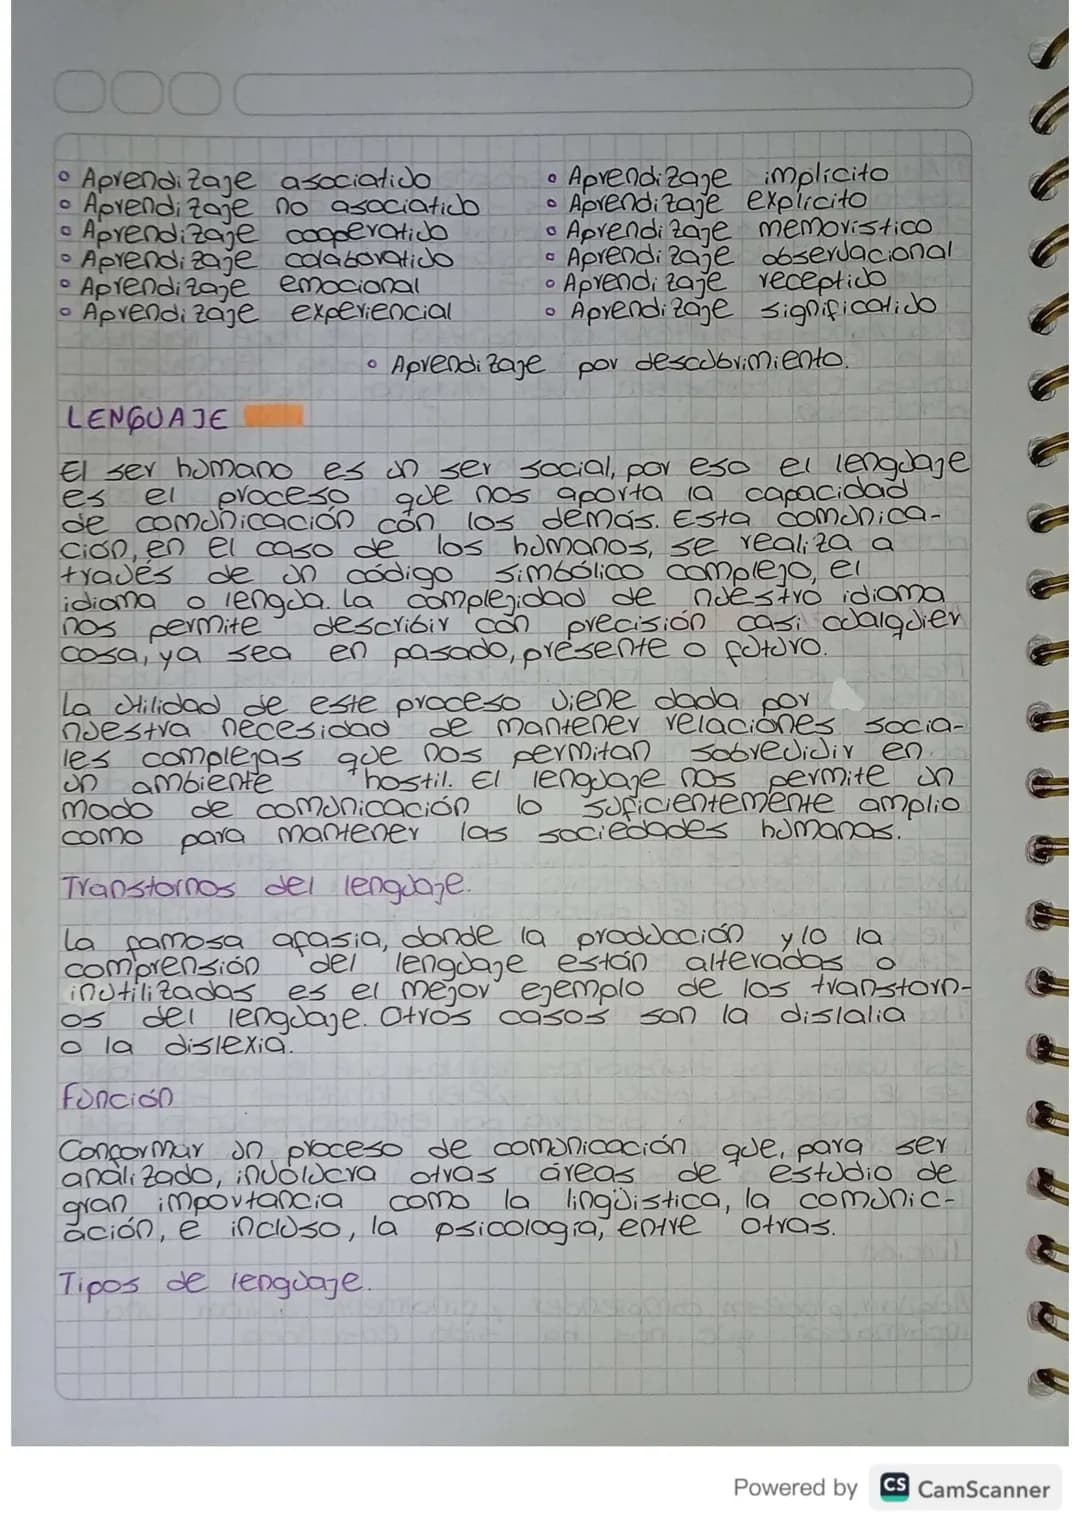 • Aprendizaje asociativo
• Aprendizaje no asociativo
• Aprendizaje cooperativo
• Aprendizaje colaborativo
• Aprendizaje emocional
• Aprendizaje experiencial
• Aprendizaje implicito
• Aprendizaje explicito
• Aprendizaje memoristico
• Aprendizaje observacional
• Aprendizaje receptivo
• Aprendizaje significativo
• Aprendizaje por descubrimiento.
LENGUAJE
El ser humano es un ser social, por eso el lenguaje
es el proceso que nos aporta la capacidad
de comunicación con los demás. Esta comunica-
ción, en el caso de los humanos, se realiza a
través de un código simbólico complejo, el
idioma o lengua. La complejidad de nuestro idioma
nos permite describir con precisión casi cualquier
cosa, ya sea en pasado, presente o futuro.
La utilidad de este proceso viene dada por
nuestra necesidad de mantener relaciones socia-
les complejas que nos permitan sobrevivir en
un ambiente hostil. El lenguaje nos permite un
modo de comunicación lo suficientemente amplio
como para mantener las sociedades humanas.
Transtornos del lenguaje.
La famosa afasia, donde la producción y/o la
comprensión del lenguaje están alteradas o
inutilizadas es el mejor ejemplo de los transtorn-
os del lenguaje. Otros casos son la dislalia
o la dislexia.
Función
Conformar un proceso de comunicación que, para ser
analizado, involucra otras áreas de estudio de
gran importancia como la lingüistica, la comunic-
ación, e incluso, la psicologia, entre otras.
Tipos de lenguaje.
Powered by CS CamScanner